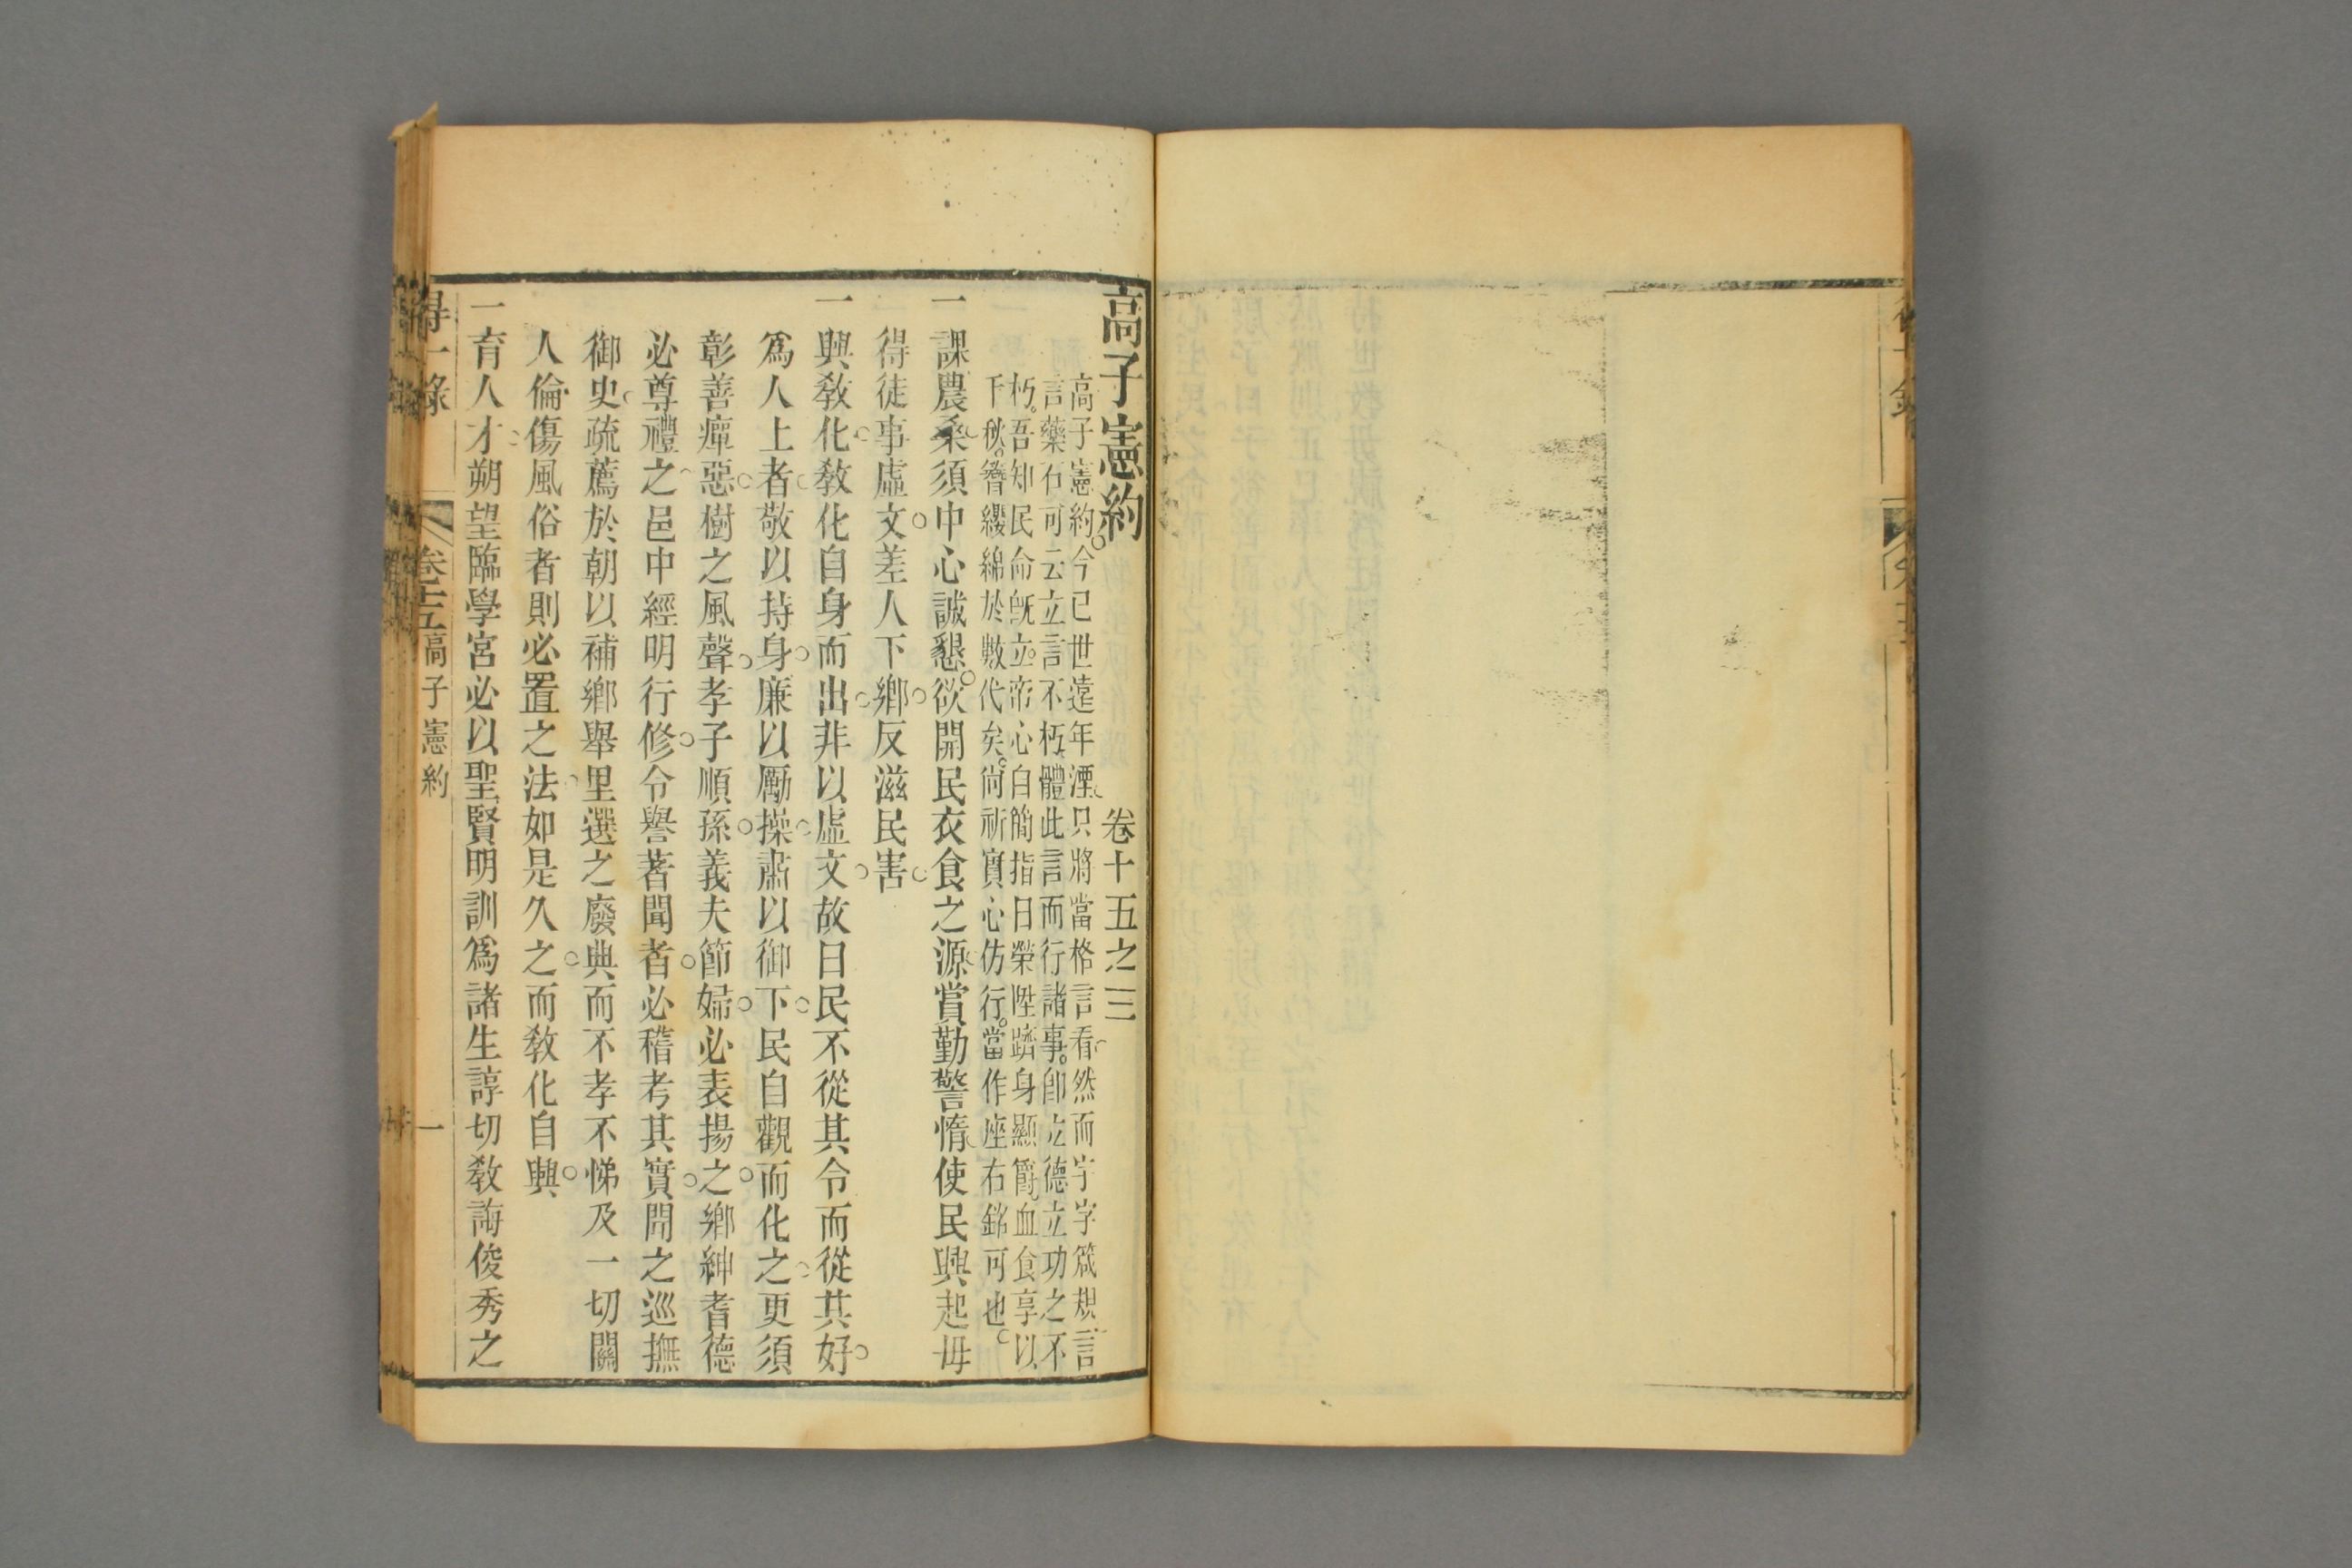 高子憲約　卷十五之三
高子憲約。今已世遠年湮。只將當格言看。然而字字箴規。言
言藥石。可云立言不朽。體此言而行諸事。卽立德立功之不
朽。吾知民命旣立。帝心自簡。指日榮陞。躋身顯爵。血食享以
千秋。簪纓綿於數代矣。尙祈實心仿行。當作座右銘可也。
一課農桑須中心誠懇。欲開民衣食之源。賞勤警惰。使民興起。毋
得徒事虛文。差人下鄉。反滋民害。
一興敎化。敎化自身而出。非以虛文。故曰民不從其令而從其好。
爲人上者。敬以持身。廉以勵操。肅以御下。民自觀而化之。更須
彰善癉惡。樹之風聲。孝子順孫。義夫節婦。必表揚之。鄉紳耆德
必尊禮之。邑中經明行修。令譽著聞者。必稽考其實。聞之巡撫
御史。疏薦於朝。以補鄉舉里選之廢典。而不孝不悌及一切關
人倫傷風俗者。則必置之法。如是久之。而敎化自興。
一育人才。朔望臨學宮。必以聖賢明訓爲諸生諄切敎誨。俊秀之
得一錄　卷十五　高子憲約　一